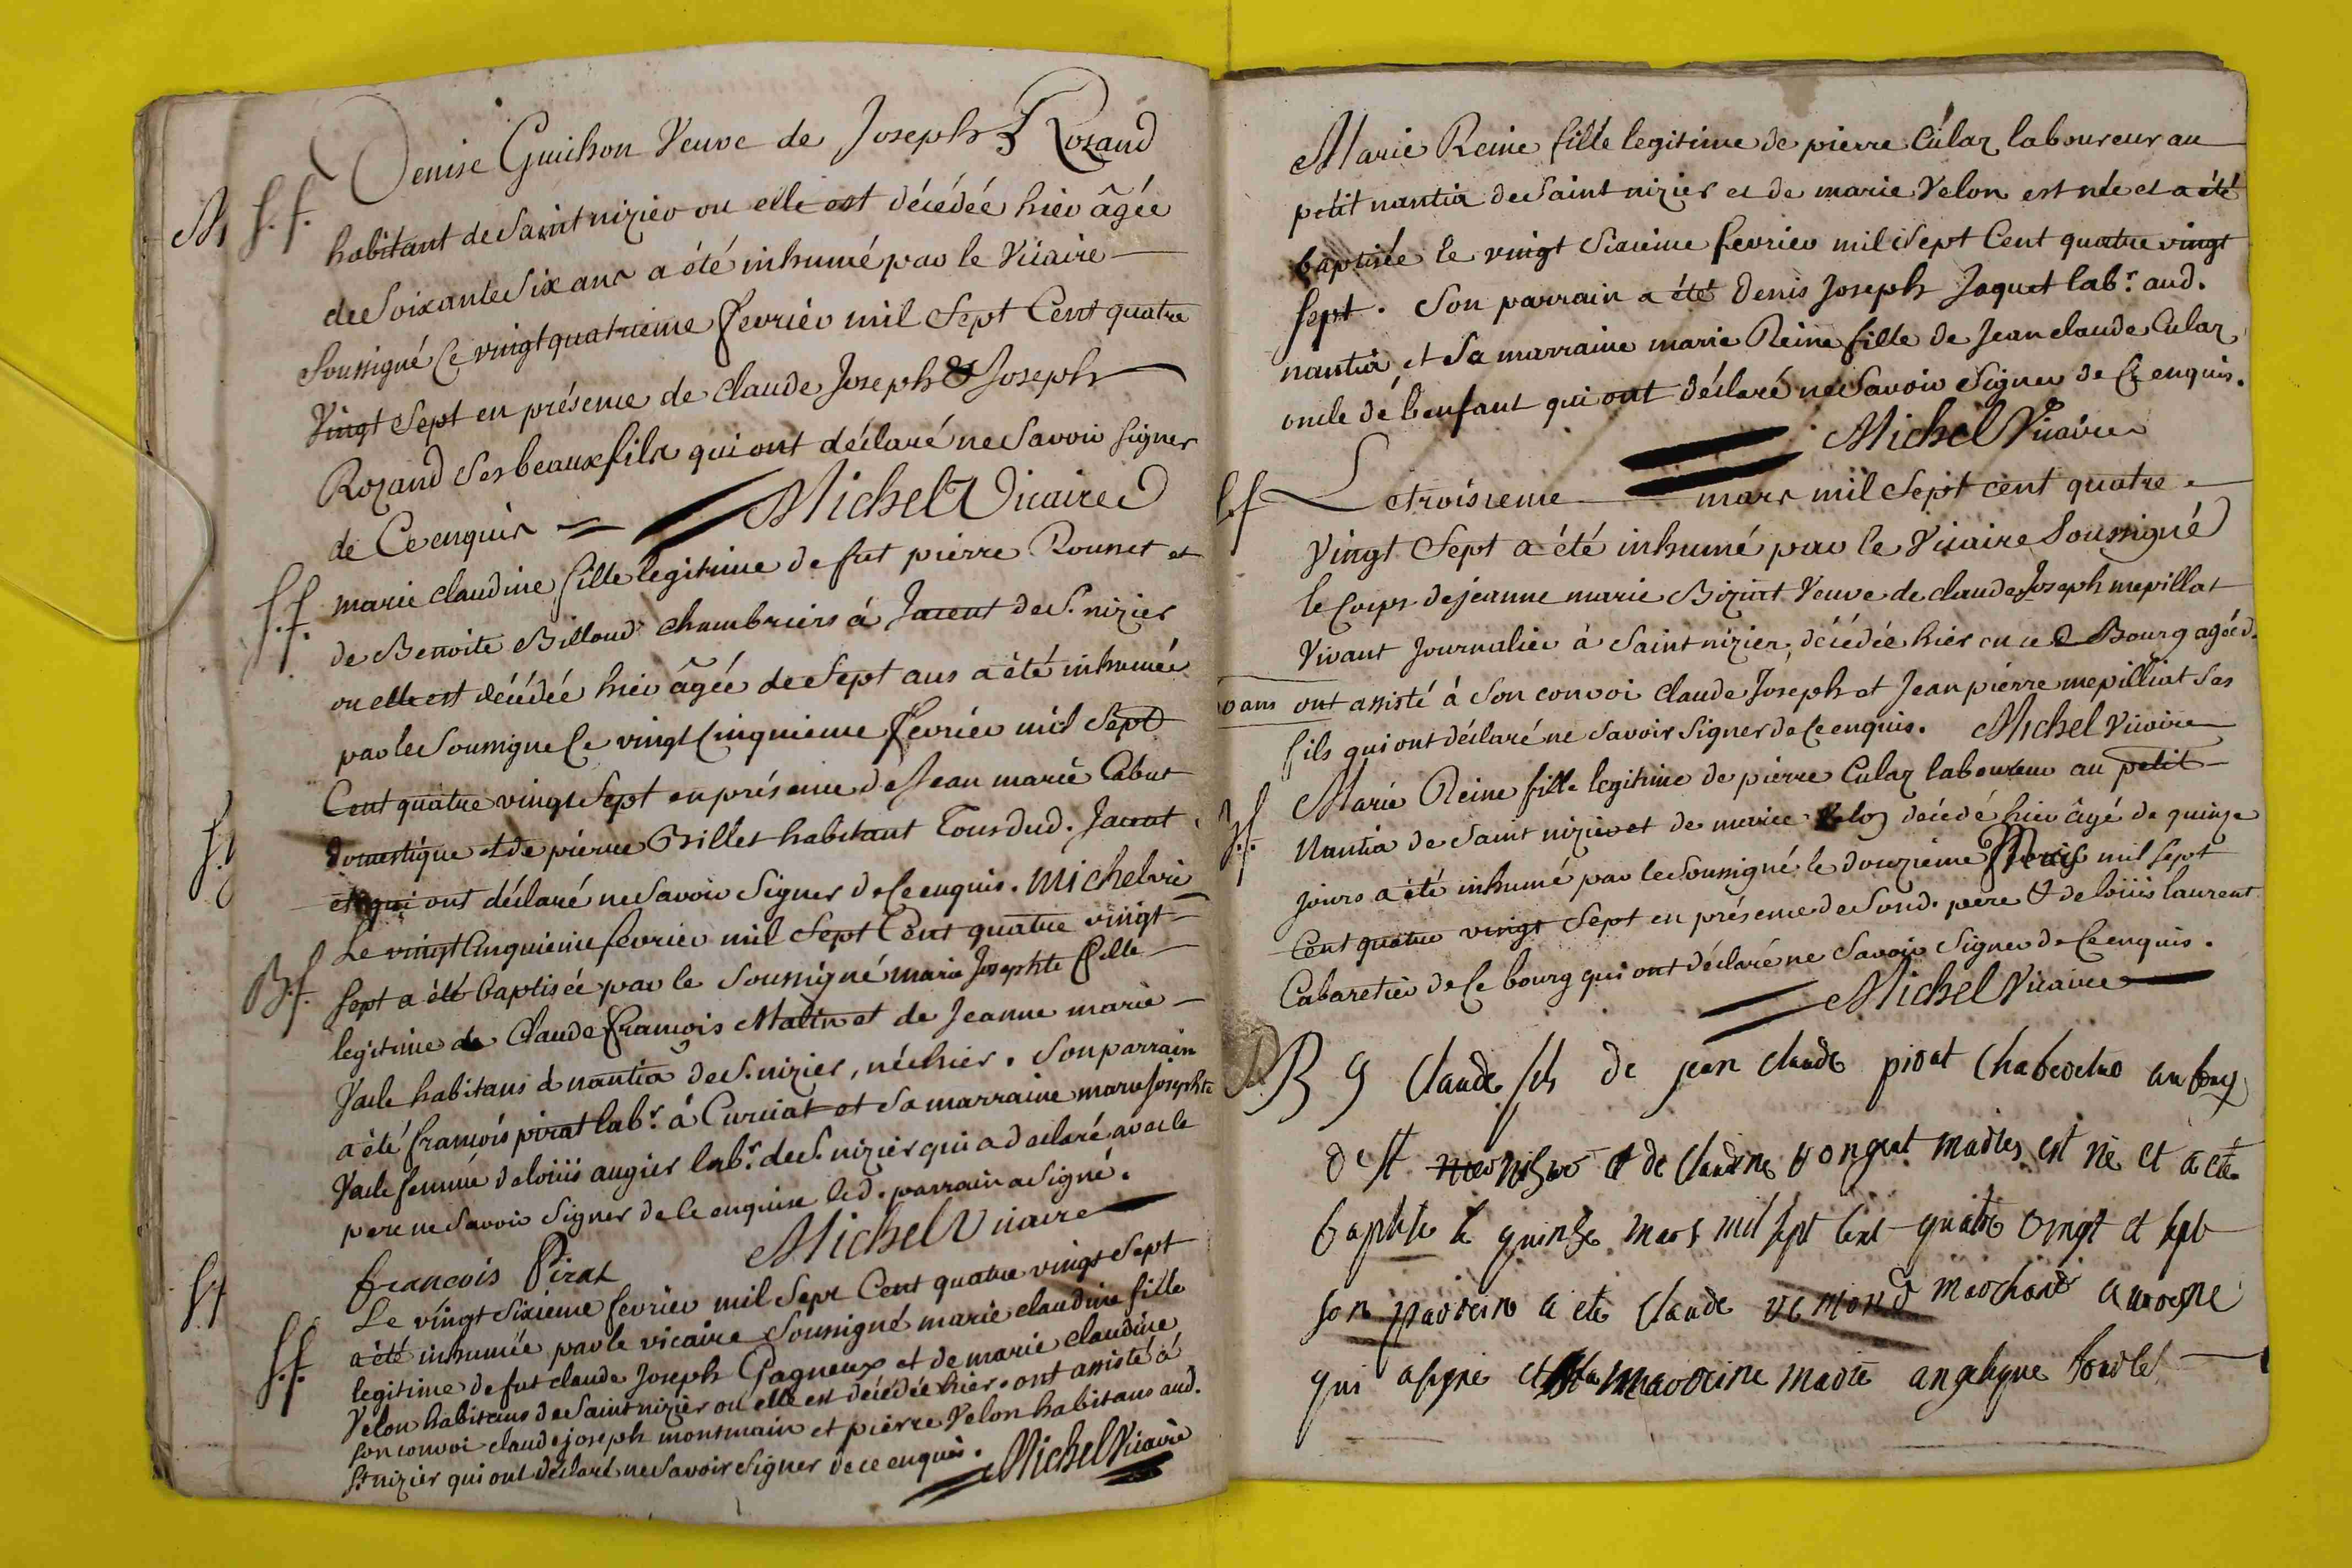 Denise Guichon Veuve de Joseph Rozand
habitant de Saint nizier ou elle est décédée hier âgée
de Soixante Six ans a été inhumé par le Vicaire
Soussigné Ce vingt quatrieme fevrier mil Sept Cent quatre
Vingt Sept en présence de claude Joseph & Joseph
Rozand Ses beaux fils qui ont déclaré ne Savoir signer
de Ce enquis Michel Vicaire
f.f. marie claudine fille legitime de fut pierre Rounet et
de Benoite Billoud chambriers à Jacent de S. nizier
ou elle est décédée hier âgée de Sept ans a été inhumée
par le Soussigné Ce vingt Cinquieme fevrier mil Sept
Cent quatre vingt Sept en présence de Jean marie Cabut
domestique et de pierre Billet habitant Tous dud. Jacent
et qui ont déclaré ne Savoir Signer de Ce enquis. Michel vic
Le vingt Cinquieme fevrier mil Sept Cent quatre vingt
B.f. Sept a été baptisée par le Soussigné marie Josephte fille
legitime de Claude francois Matin et de Jeanne marie
Vacle habitans à nantia de S. nizier, née hier. Son parrain
a été francois pirat lab.r à Curciat et Sa marraine marie Josephte
Vacle femme de loüis augier lab.r de S. nizier qui a declaré avec le
pere ne Savoir Signer de Ce enquise led. parrain a Signé.
francois Pirat Michel Vicaire
Le vingt Sixieme fevrier mil Sept Cent quatre vingt Sept
f.f. a été inhumée par le vicaire Soussigné marie claudine fille
legitime de fut claude Joseph Gagneux et de marie claudine
Velon habitans de Saint nizier ou elle est décédée hier. ont assisté à
Son convoi claude joseph montmain et pierre Velon habitans aud.
St nizier qui ont déclaré ne Savoir Signer de ce enquis. Michel Vicaire
Marie Reine fille legitime de pierre Cülaz laboureur au
petit nantia de Saint nizier et de marie Velon est née et a été
baptisée le vingt Sixieme fevrier mil Sept Cent quatre vingt
Sept. Son parrain a été Denis Joseph Jaquet lab.r aud.
nantia et Sa marraine marie Reine fille de Jean claude Culaz
oncle de l'enfant qui ont déclaré ne Savoir Signer de Ce enquis.
Michel Vicaire
Le troisieme mars mil Sept cent quatre
Vingt Sept a été inhumé par le Vicaire Soussigné
le Corps de jeanne marie Biziat Veuve de claude Joseph mepillat
Vivant Journalier à Saint nizier, décédée hier en ce Bourg agée d.
ans ont assisté à Son convoi claude Joseph et Jean pierre mepilliat Ses
fils qui ont déclaré ne Savoir Signer de Ce enquis. Michel Vicaire
Marie Reine fille legitime de pierre Culaz laboureur au petit
Nantia de Saint nizier et de marie Velon décédé hier âgé de quinze
jours a été inhumé par le Soussigné le douzieme Mars mil Sept
Cent quatre vingt Sept en présence de Sond. pere & de loüis laurent
Cabaretier de Ce bourg qui ont déclaré ne Savoir Signer de Ce enquis.
Michel Vicaire
B G Claude fils de jean claude pirat au bourg
de St et de claudine est né et a été
baptisé le quinze mars mil sept cent quatre vingt et sept
son parrain a été claude marchand
qui a signé et Sa marraine marie angelique